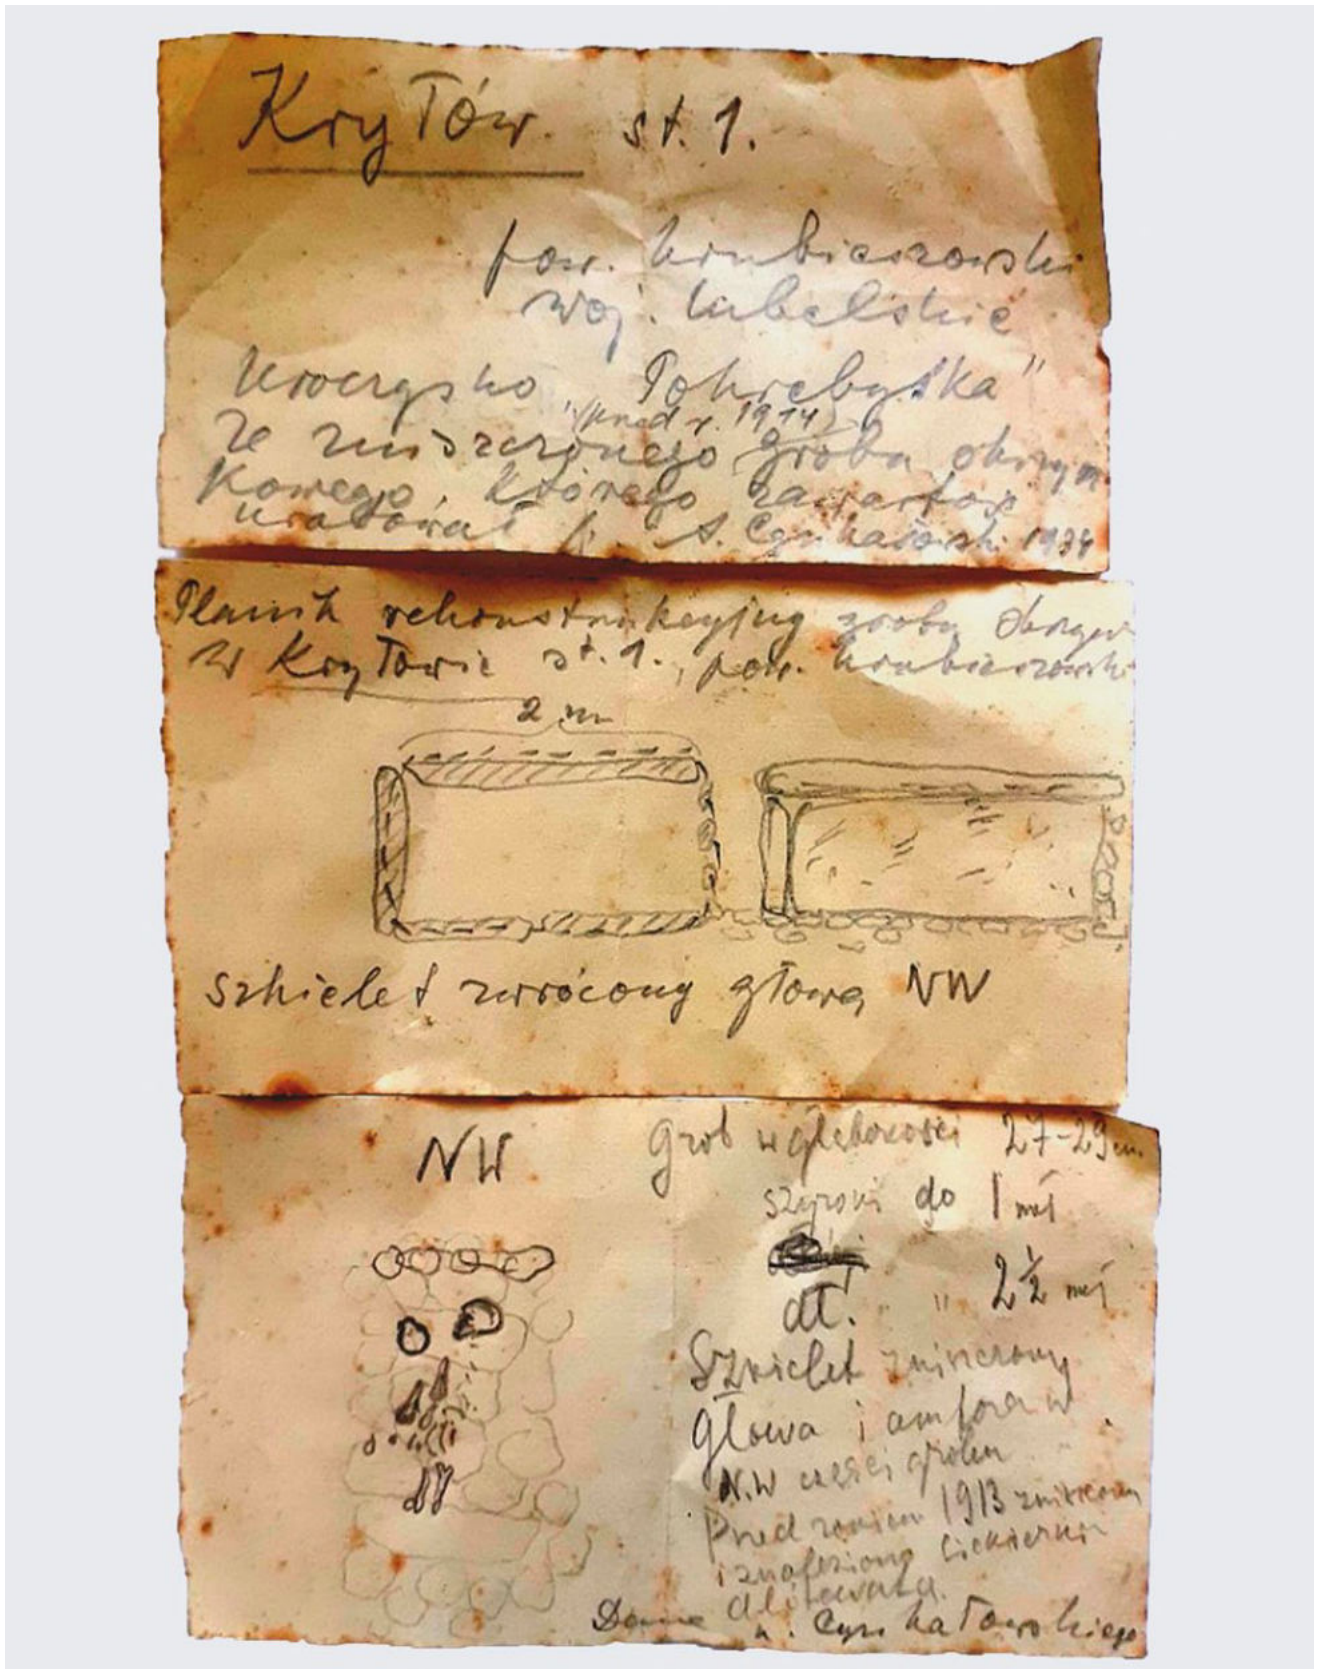 Kryłów. st. 1.
pow. hrubieszowski
woj. lubelskie
Uroczysko „Pohrebyśka"
(przed r. 1914)
ze zniszczonego grobu skrzyn
kowego, którego zawartość
uratował p. A. Cynkałowski 1934
Planik rekonstrukcyjny grobu skrzyn
w Kryłowie st. 1., pow. hrubieszowski
2 m
szkielet zwrócony głową NW
NW
Grob w głębokości 27-29 cm.
szyroki do 1 met
dł. " 2½ met
Szkielet zniszczony
Głowa i amfora w
N.W części grobu
Pred rokiem 1913 zniszczony
i znaleziono siekierka
Dane A. Cynkałowskiego